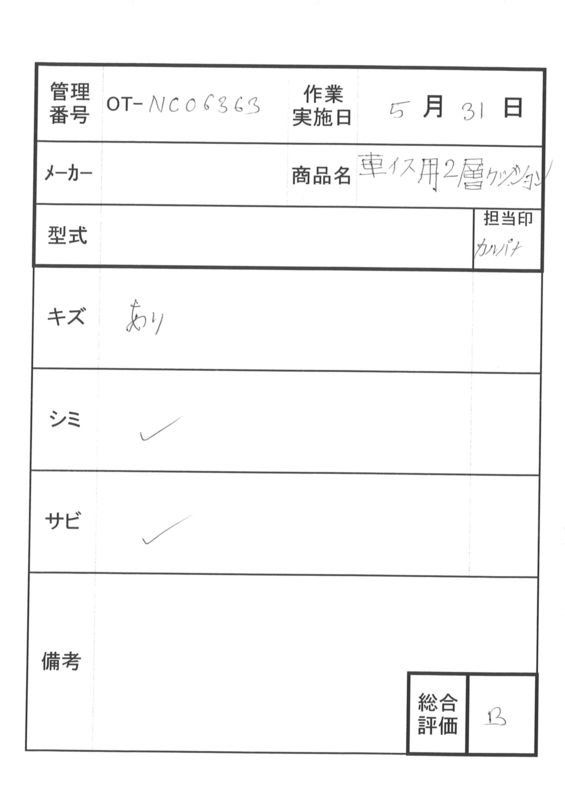 管理
番号
OT-NC06363
作業
実施日
5 月 31 日
メーカー
商品名
車イス用2層クッション
型式
担当印
カルパナ
キズ
あり
シミ
✓
サビ
✓
備考
総合
評価
B